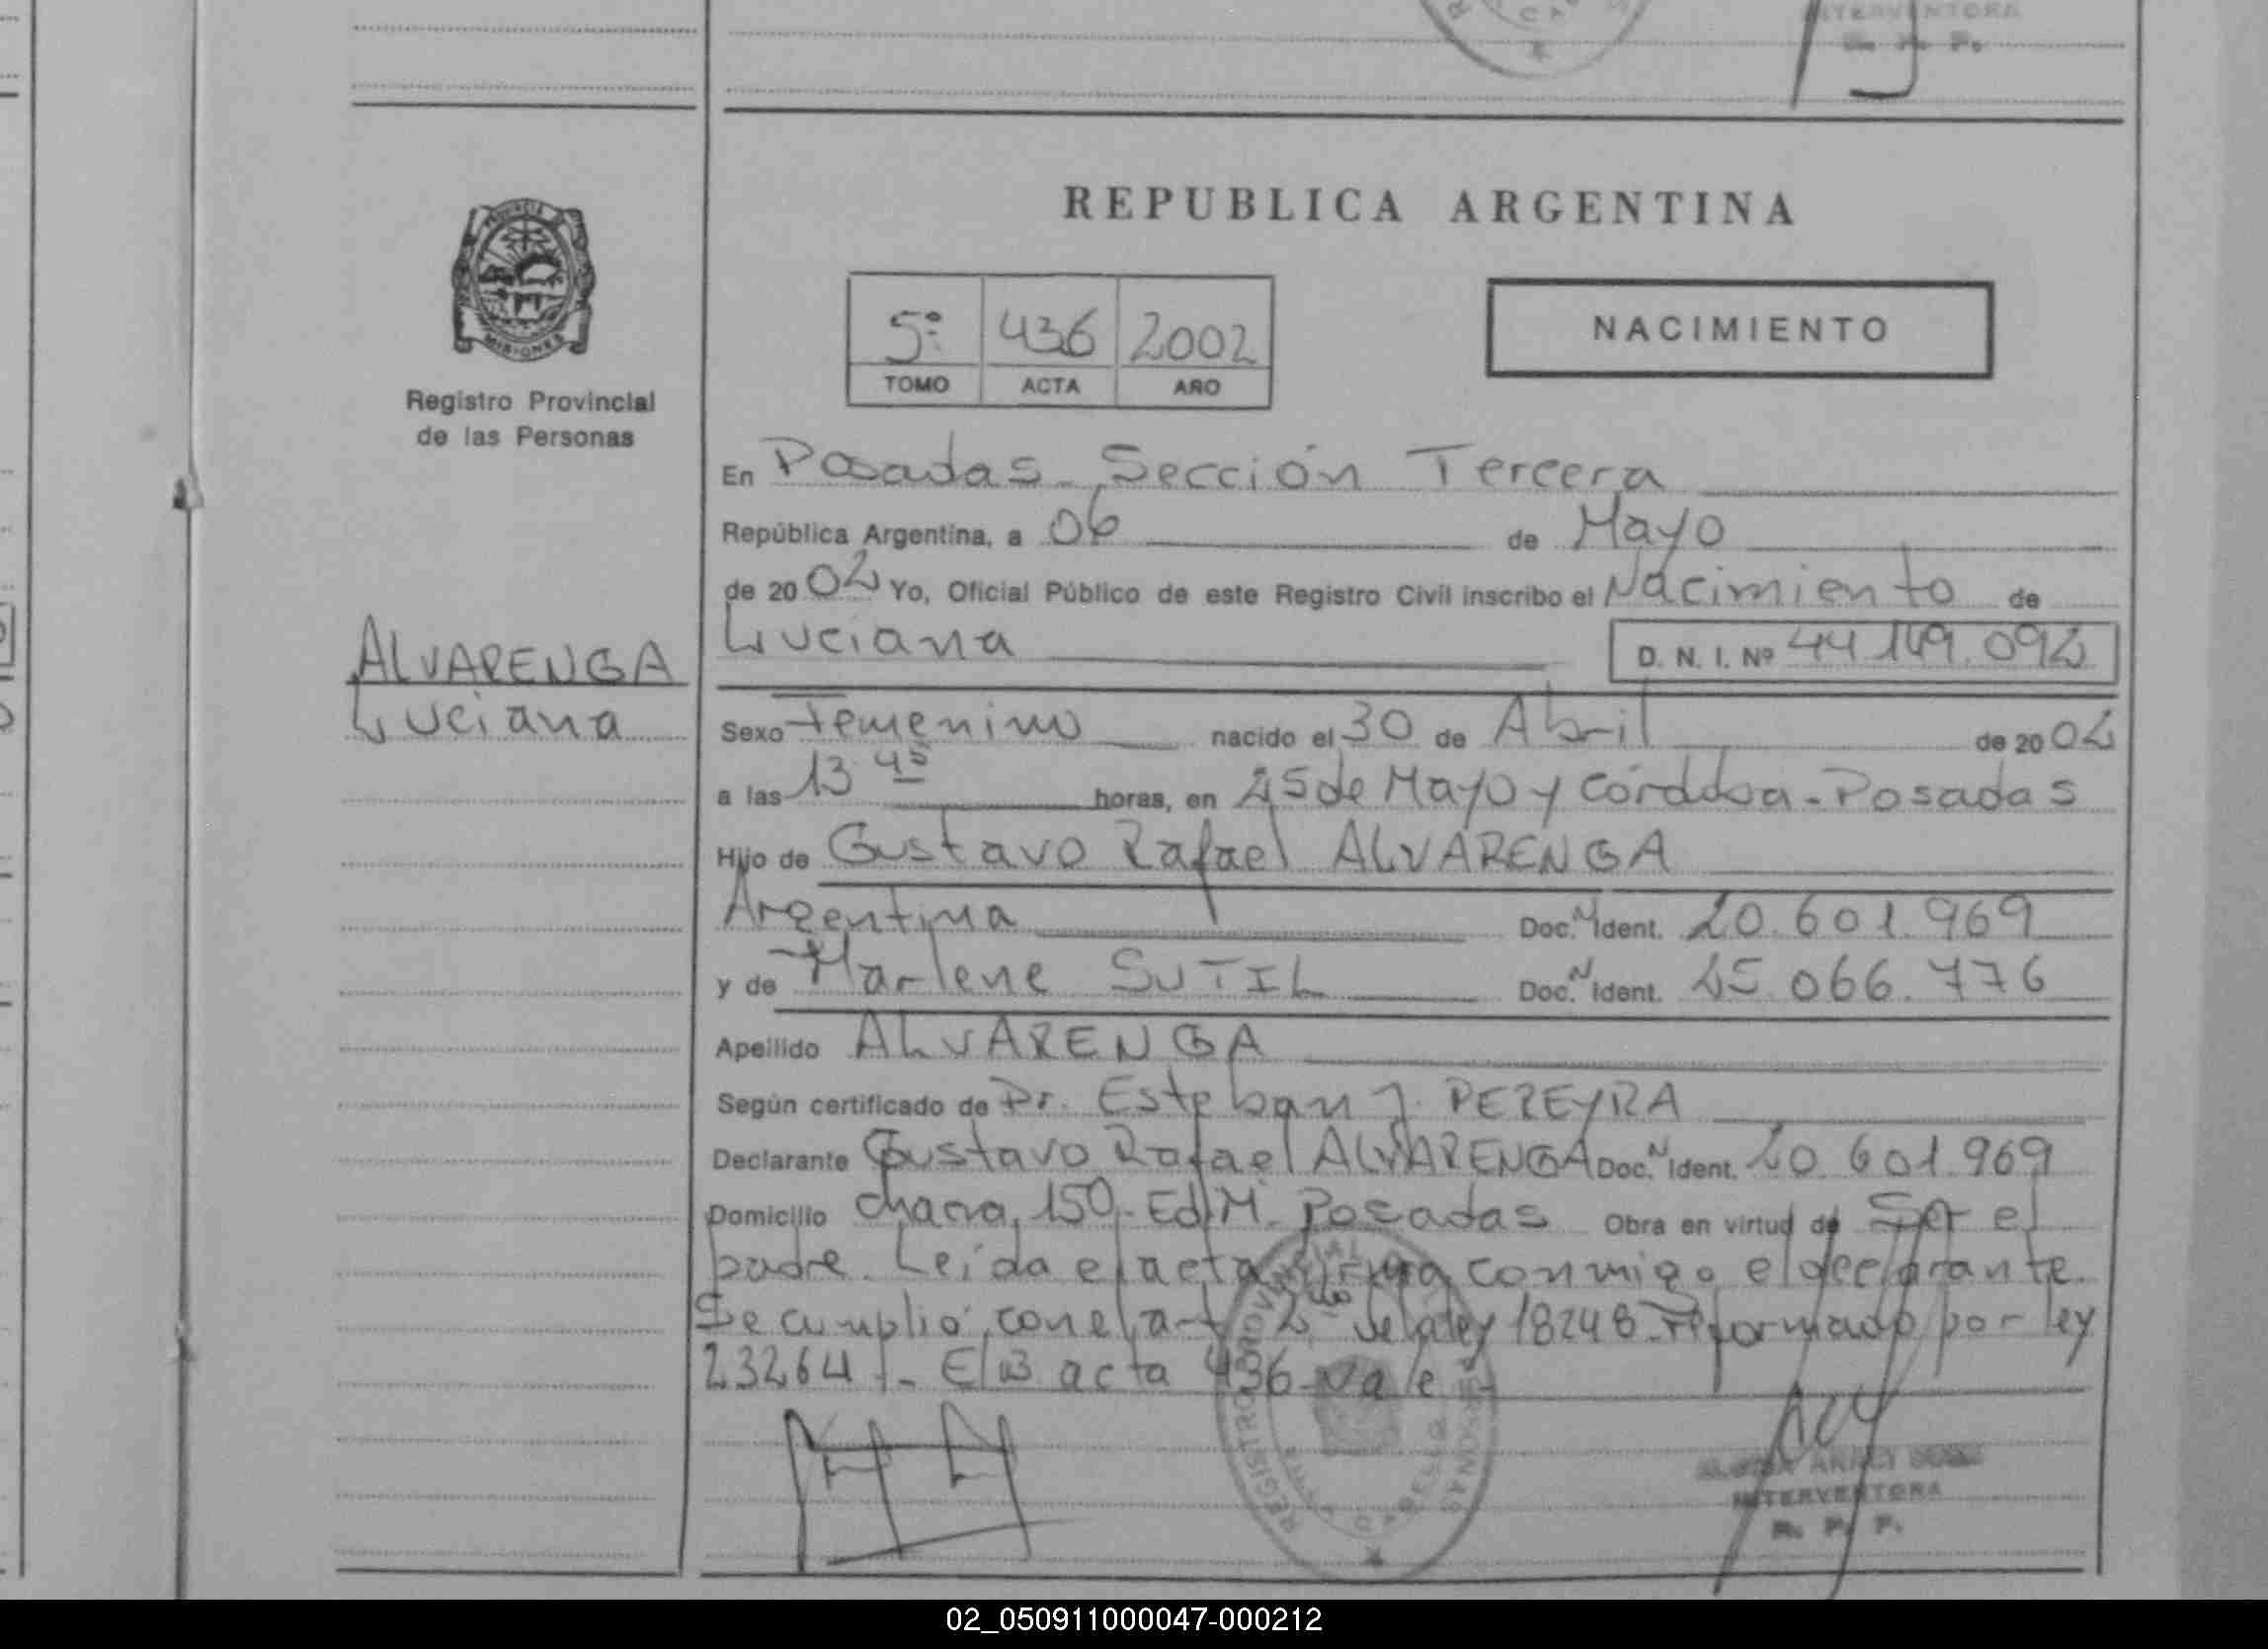 INTERVENTORA
R. P. P.
REPUBLICA ARGENTINA
PROVINCIA
MISIONES
5º 436 2002
TOMO ACTA AÑO
NACIMIENTO
Registro Provincial
de las Personas
En Posadas - Sección Tercera
República Argentina, a 06 de Mayo
de 2002 Yo, Oficial Público de este Registro Civil inscribo el Nacimiento de
Luciana D. N. I. Nº 44 149.092
ALVARENGA
Luciana
Sexo Femenino nacido el 30 de Abril de 2002
a las 13 45 horas, en 25 de Mayo y Córdoba - Posadas
Hijo de Gustavo Rafael ALVARENGA
Argentina Doc. N Ident. 20.601.969
y de Marlene SUTIL Doc. N Ident. 25.066.776
Apellido ALVARENGA
Según certificado de Dr. Esteban J. PEREYRA
Declarante Gustavo Rafael ALVARENGA Doc. N Ident. 20.601.969
Domicilio chacra 150 - Ed. M. Posadas Obra en virtud de Ser el
padre. Leída el acta firma conmigo el declarante.
Se cumplió con el art 2do de la ley 18248 reformado por ley
23264 - E/B acta 436 Vale -
INTERVENTORA
R. P. P.
02_050911000047-000212